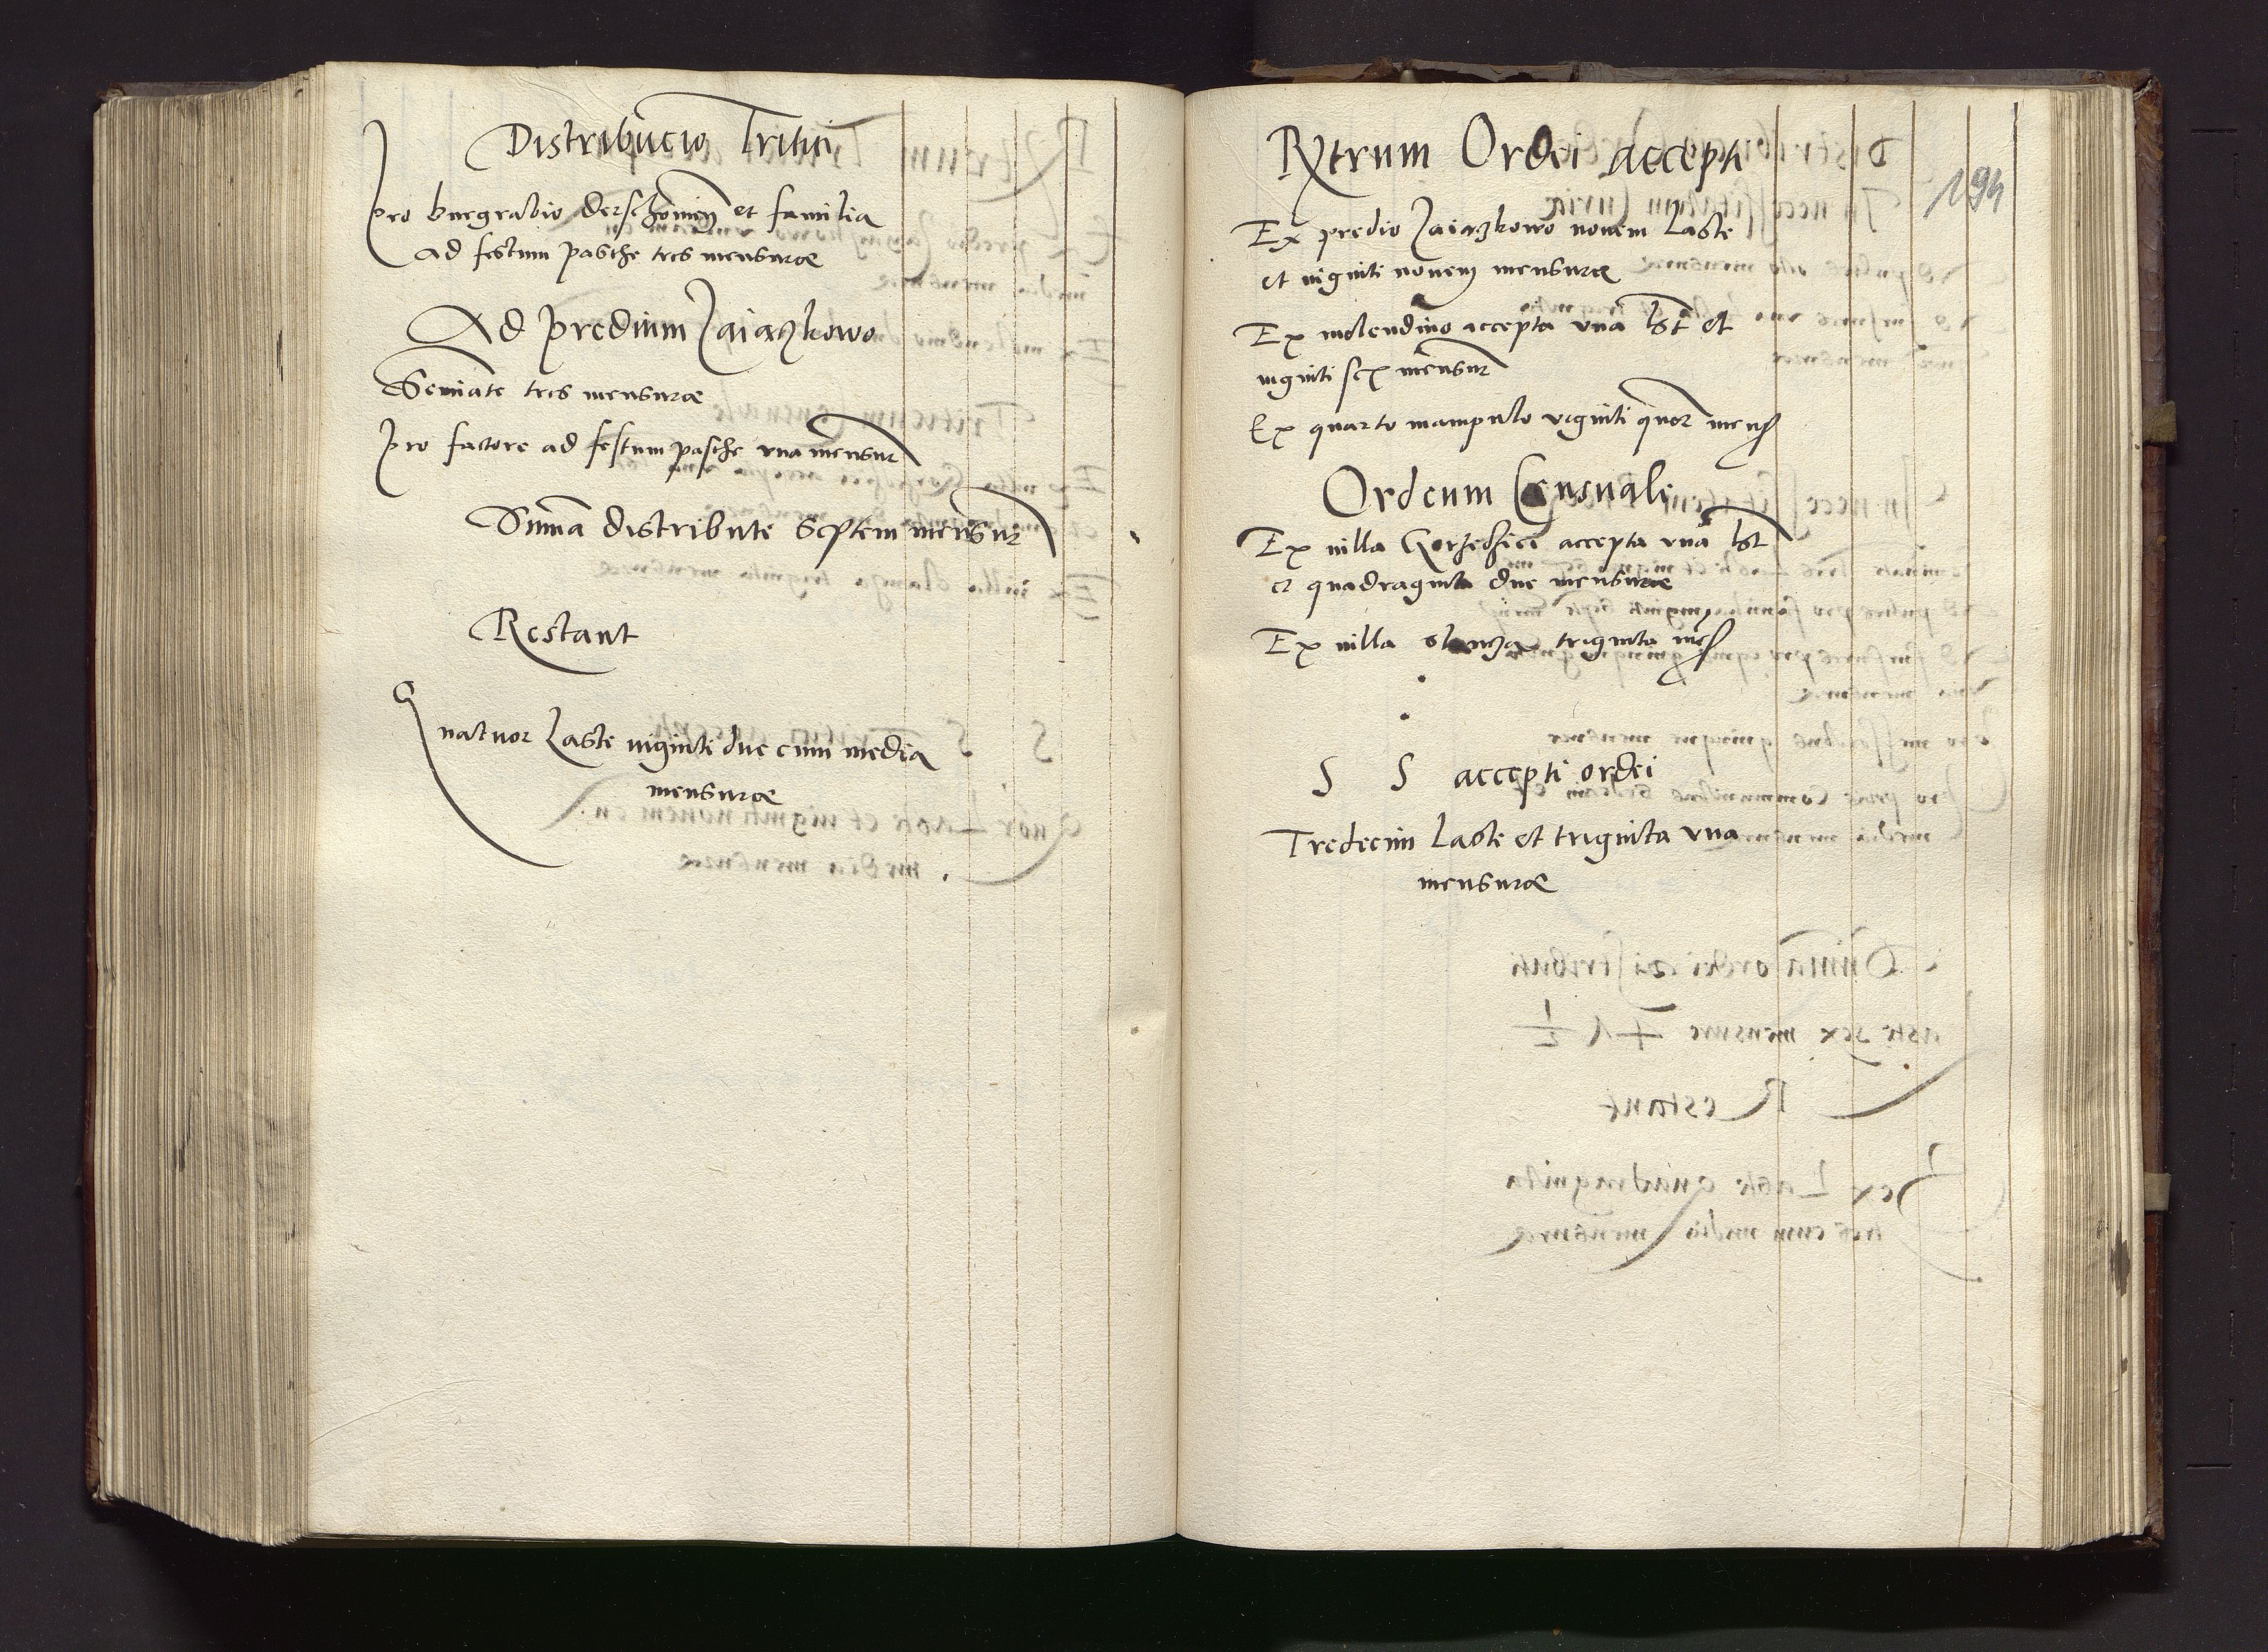 Distribucio Tritici
Pro burgrabio derschouien et familia
ad festum pasche tres mensurae
Ad predium Zaiaczkowo
Seminate tres mensurae
Pro factore ad festum pasche una mensur
Summa distribute septem mensur
Restant
Quatuor Laste viginti due cum media
mensurae
194
Rxtrum Ordei accepti
Ex predio Zaiaczkowo novem Laste
et viginti novem mensurae
Ex molendino accepta una lst et
viginti sex mensur
Ex quarto manipulo viginti quor mens
Ordeum Censuale
Ex villa Gorzedziei accepta una lst
et quadraginta due mensurae
Ex villa slanza triginta mes
S S accepti ordei
Tredecim laste et triginta una
mensurae